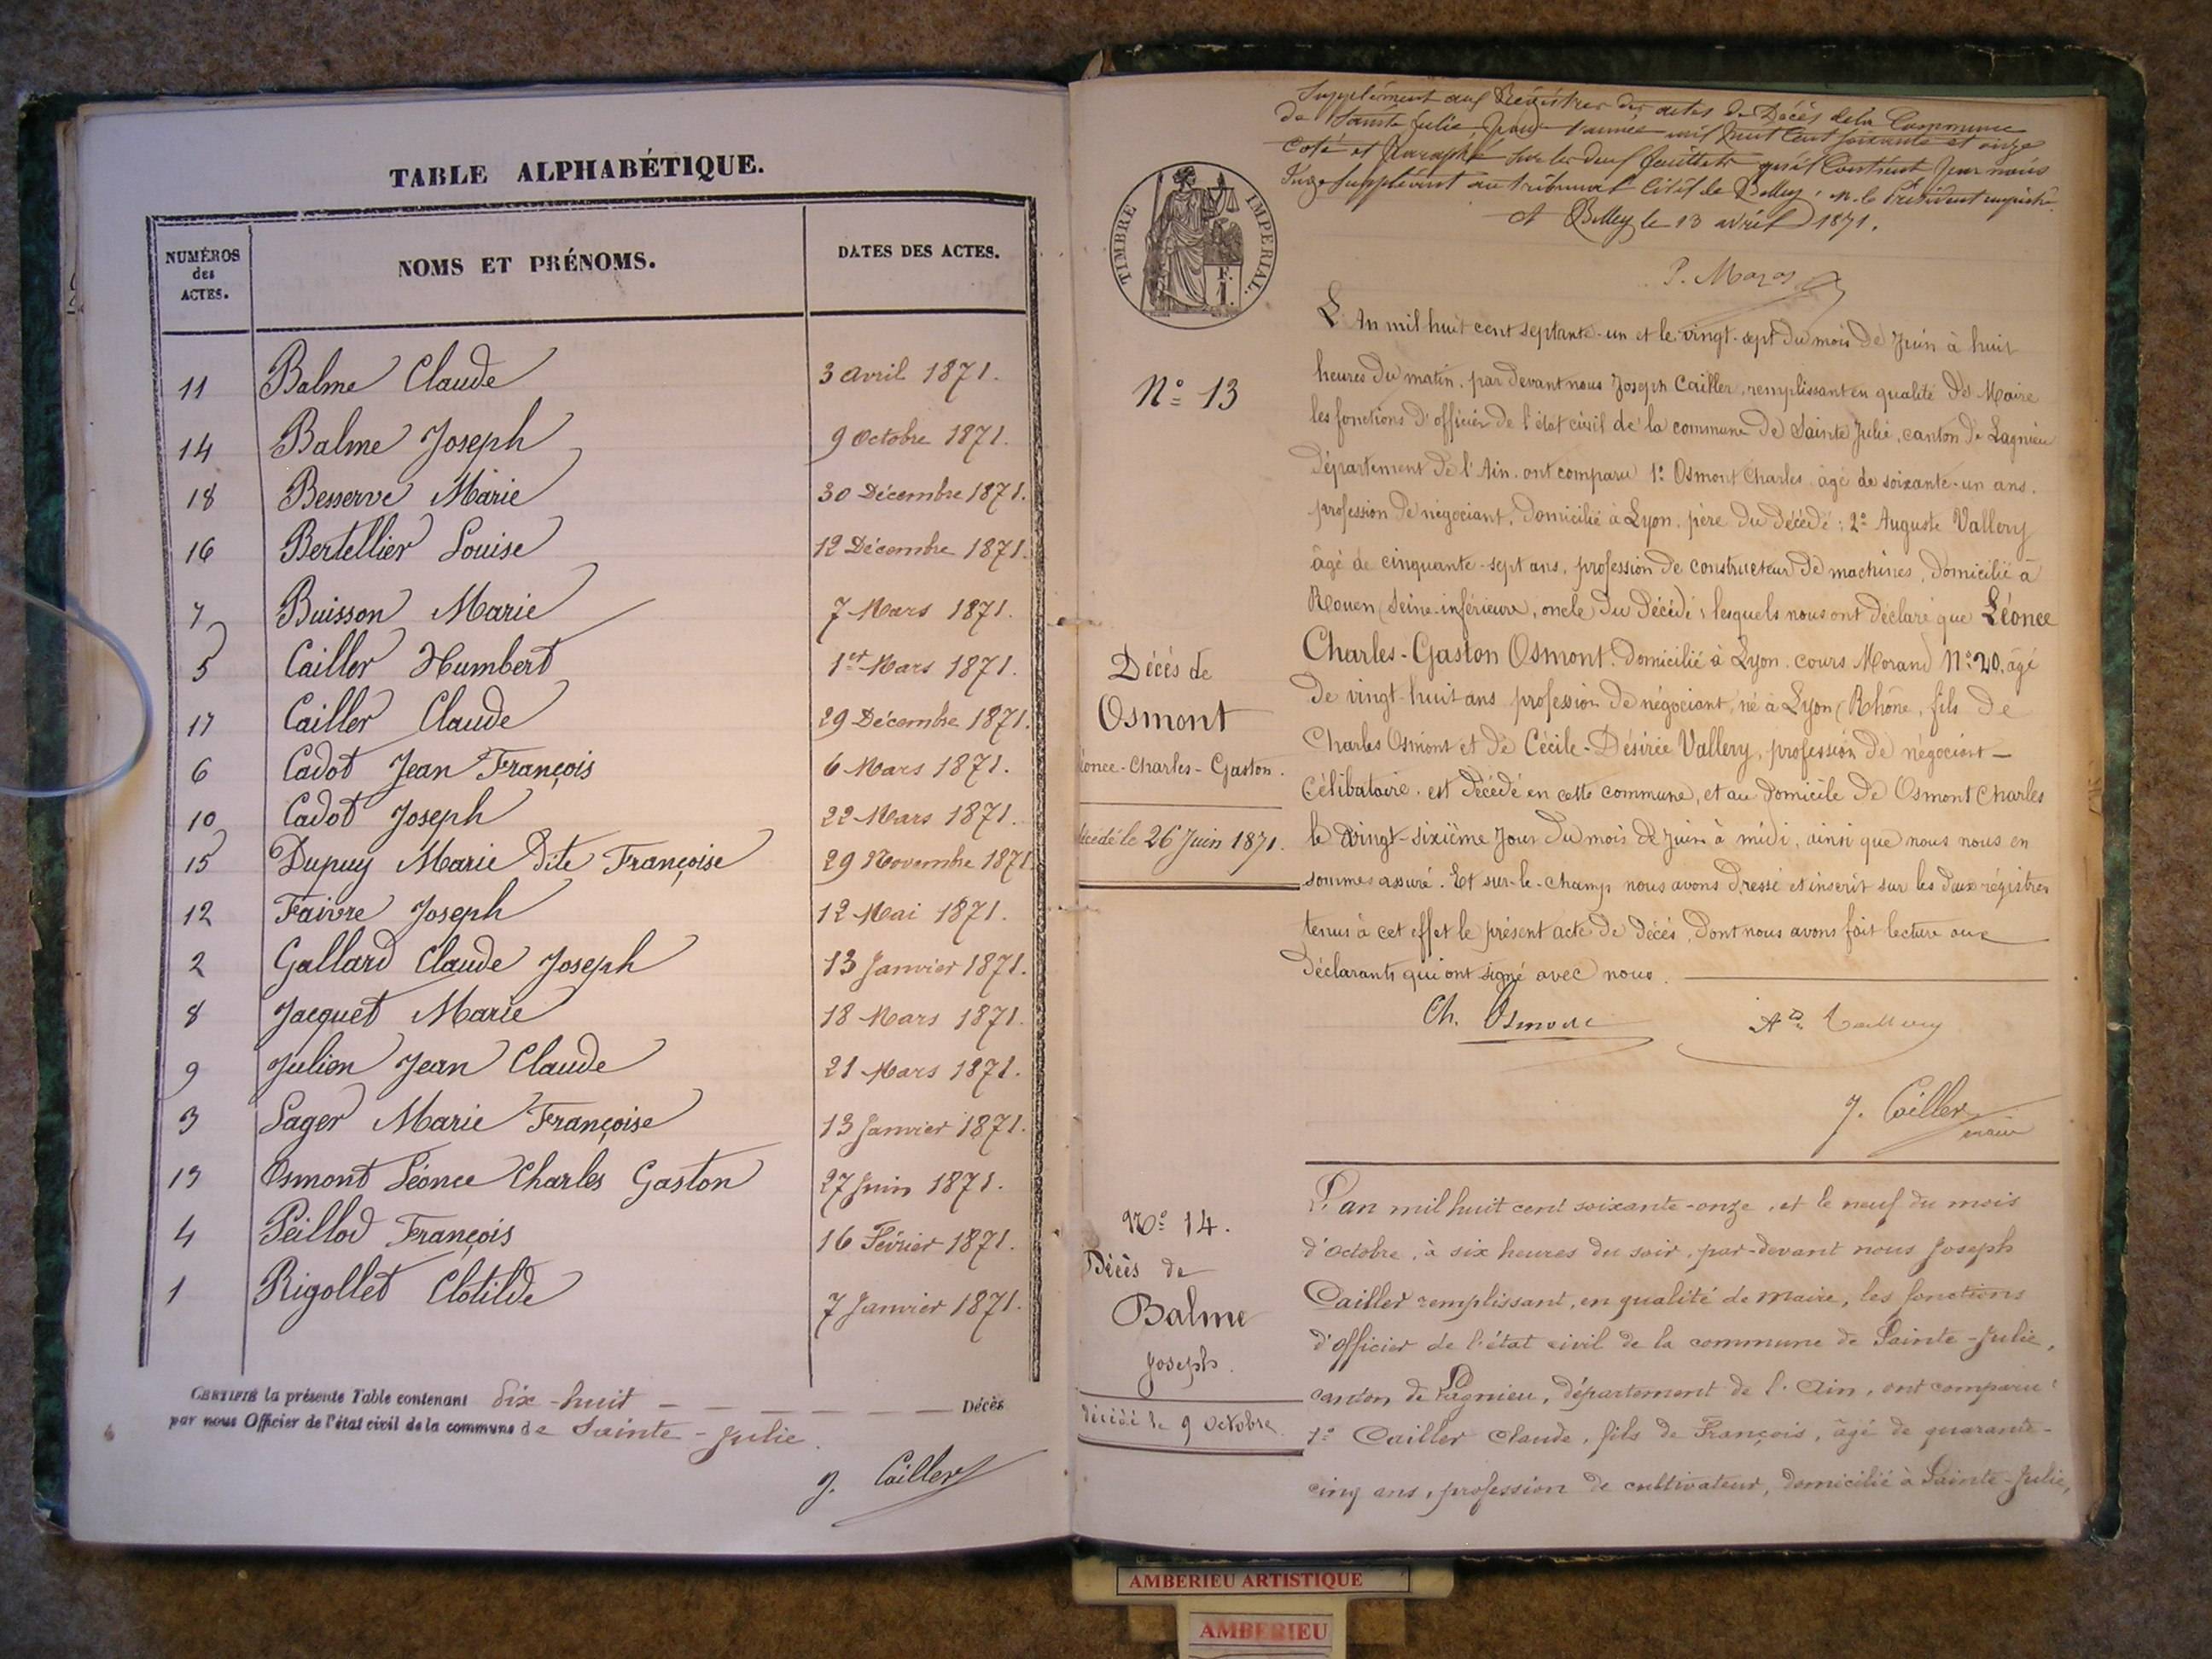 TABLE ALPHABÉTIQUE.
NUMÉROS des ACTES.
NOMS ET PRÉNOMS.
DATES DES ACTES.
11 Balme Claude 3 avril 1871.
14 Balme Joseph 9 Octobre 1871.
18 Besserve Marie 30 Décembre 1871.
16 Bertellier Louise 12 Décembre 1871.
7 Buisson Marie 7 Mars 1871.
5 Cailler Humbert 1er Mars 1871.
17 Cailler Claude 29 Décembre 1871.
6 Cadot Jean François 6 Mars 1871.
10 Cadot Joseph 22 Mars 1871.
15 Dupuy Marie dite Françoise 29 Novembre 1871
12 Faivre Joseph 12 Mai 1871.
2 Gallard Claude Joseph 13 Janvier 1871.
8 Jacquet Marie 18 Mars 1871.
9 Julien Jean Claude 21 Mars 1871.
3 Lager Marie Françoise 13 Janvier 1871.
13 Osmont Léonce Charles Gaston 27 Juin 1871.
4 Peillod François 16 Février 1871.
1 Rigollet Clotilde 7 Janvier 1871.
CERTIFIÉ la présente Table contenant dix-huit Décès
par nous Officier de l'état civil de la commune de Sainte-Julie.
J. Cailler
Supplément aux Régistres des actes de Décès de la Commune
de Sainte Julie pour l'année mil huit cent soixante et onze
Coté et Paraphé sur les deux feuillets qu'il contient par nous
Juge Suppléant au tribunal Civil de Belley, M. le Président empêché
A Belley le 13 avril 1871.
TIMBRE IMPÉRIAL.
F.
1.
L'An mil huit cent septante-un et le vingt-sept du mois de Juin à huit
N° 13
heures du matin, par devant nous Joseph Cailler, remplissant en qualité de Maire
les fonctions d'officier de l'état civil de la commune de Sainte Julie, canton de Lagnieu
département de l'Ain, ont comparu 1° Osmont Charles, âgé de soixante-un ans,
profession de négociant, domicilié à Lyon, père du décédé; 2° Auguste Vallery
âgé de cinquante-sept ans, profession de constructeur de machines, domicilié à
Rouen (Seine-inférieure, oncle du Décédé; lesquels nous ont déclaré que Léonce
Charles-Gaston Osmont, domicilié à Lyon, cours Morand N° 20, âgé
de vingt-huit ans profession de négociant, né à Lyon (Rhône, fils de
Charles Osmont et de Cécile-Désirée Vallery, profession de négociant —
Célibataire, est décédé en cette commune, et au domicile de Osmont Charles
le vingt-sixième jour du mois de Juin à midi, ainsi que nous nous en
sommes assuré. Et sur-le-champ nous avons dressé et inscrit sur les deux régistres
tenus à cet effet le présent acte de décès, dont nous avons fait lecture aux
déclarants qui ont signé avec nous.
Décès de
Osmont
Léonce-Charles-Gaston.
décédé le 26 Juin 1871.
Ch. Osmont
Ate Vallery
J. Cailler
maire
N° 14.
Décès de
Balme
Joseph.
décédé le 9 octobre
L'an mil huit cent soixante-onze, et le neuf du mois
d'Octobre, à six heures du soir, par-devant nous Joseph
Cailler remplissant, en qualité de maire, les fonctions
d'officier de l'état civil de la commune de Sainte-Julie,
canton de Lagnieu, département de l'Ain, ont comparu:
1° Cailler Claude, fils de François, âgé de quarante-
cinq ans, profession de cultivateur, domicilié à Sainte-Julie,
AMBERIEU ARTISTIQUE
AMBERIEU